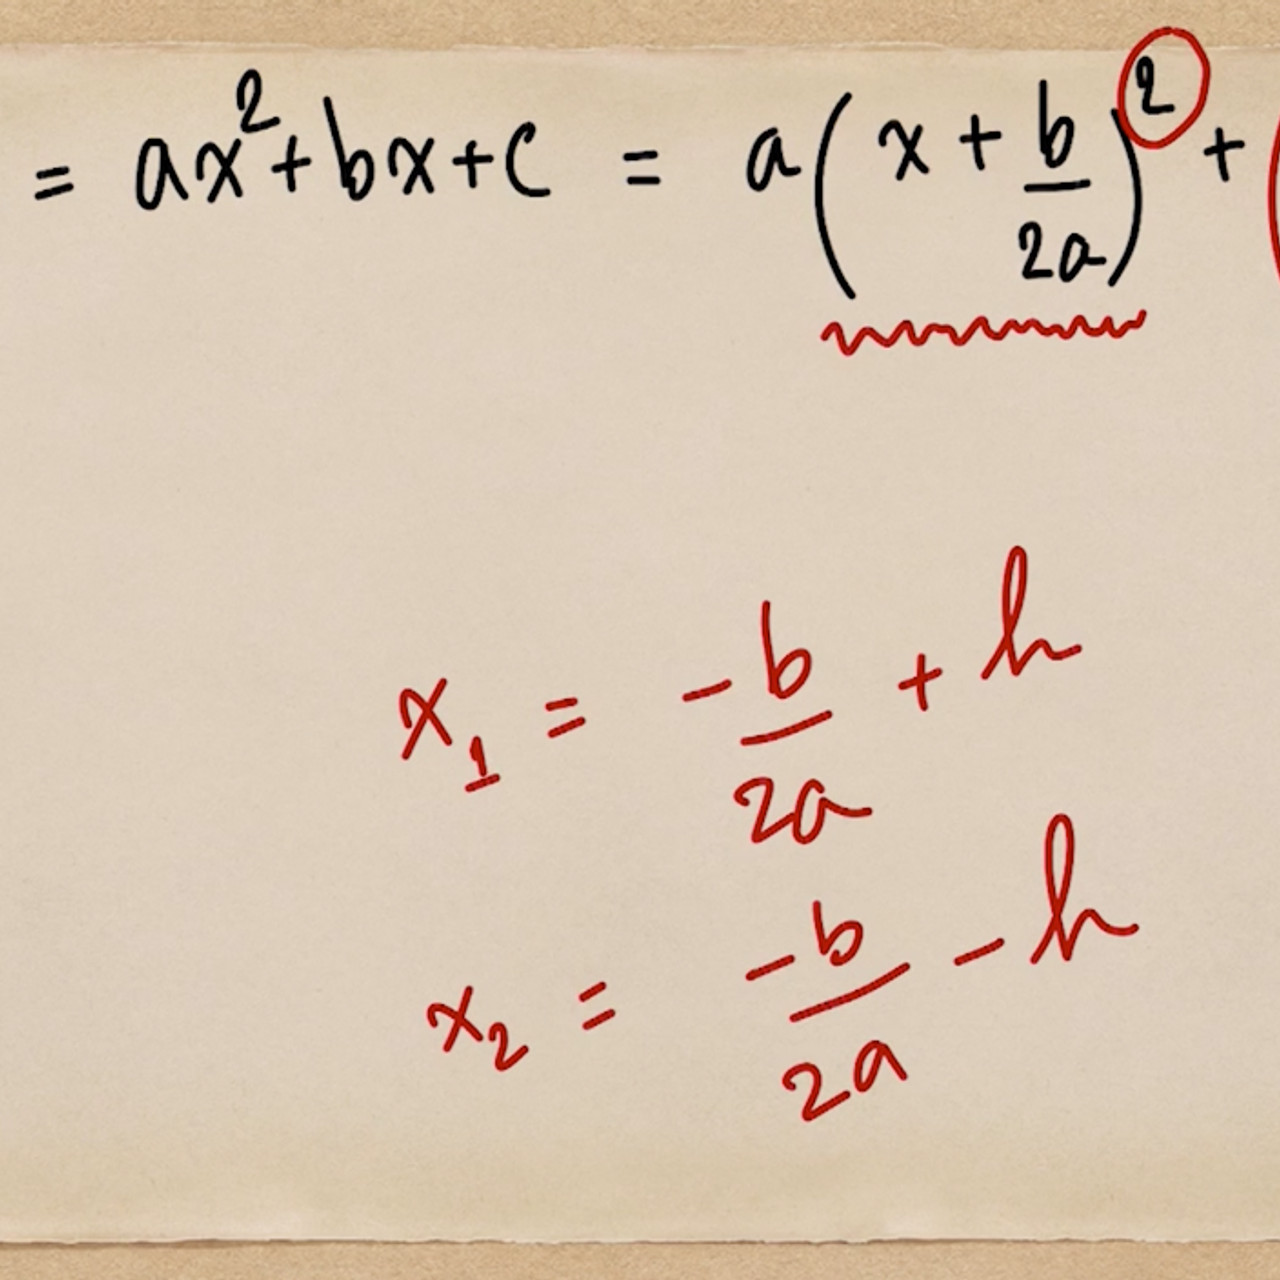 = ax²+bx+c = a(x + b/2a)² +
x₁ = -b/2a + h
x₂ = -b/2a - h